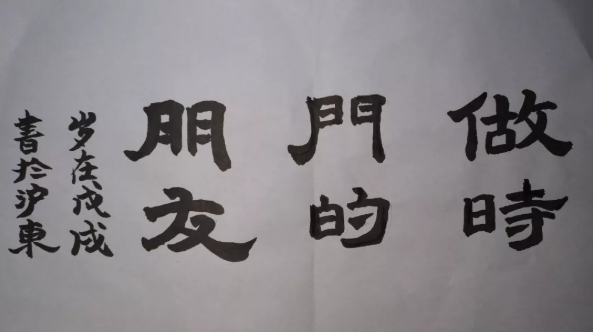 做時
門的
朋友
岁在戊戌
書於沪東